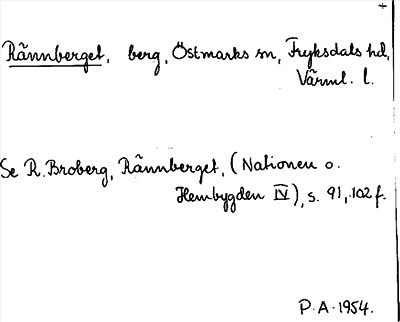 +
Rännberget, berg, Östmarks sn, Fryksdals hd,
Värml. l.
Se R. Broberg, Rännberget, (Nationen o.
Hembygden IV), s. 91, 102 f.
P.A. 1954.